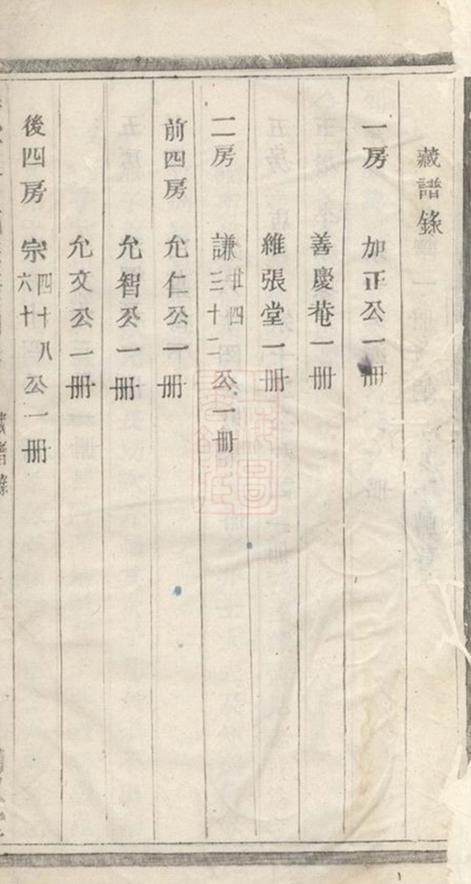 藏譜錄
一房 加正公一冊
善慶菴一冊
維張堂一冊
二房 謙廿四三十二公一冊
前四房 允仁公一冊
允智公一冊
允文公一冊
後四房 宗四十八六十公一冊
藏譜錄